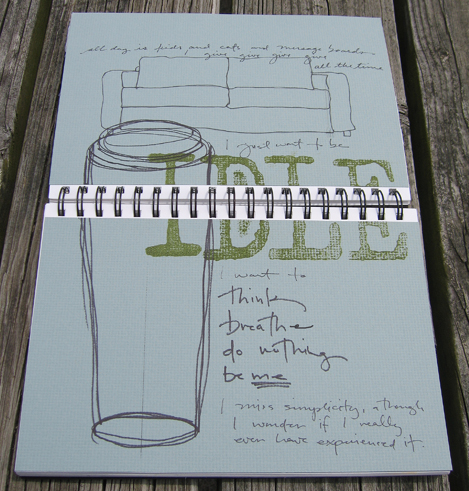 all day is kids and cats and message boards
give give give give
all the time
I just want to be
IDLE
I want to
think
breathe
do nothing
be me
I miss simplicity, although
I wonder if I really
even have experienced it.